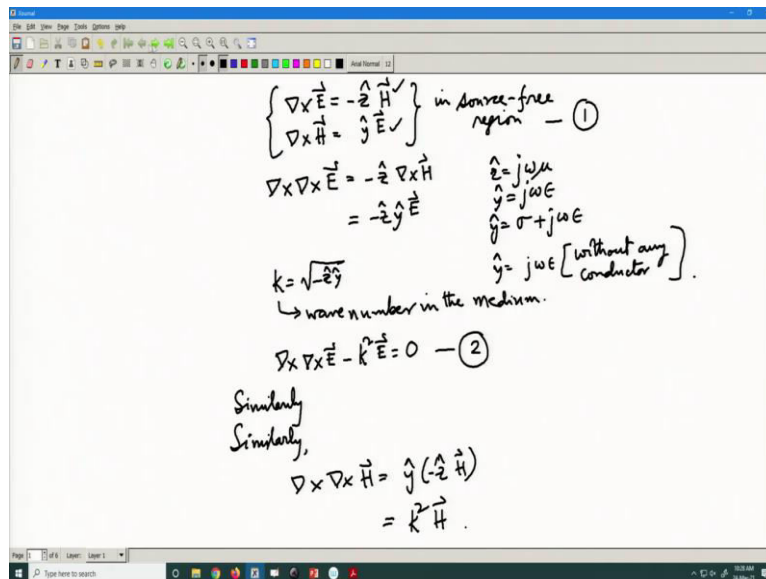 Journal
File Edit View Page Tools Options Help
Arial Normal 12
∇×E⃗ = -ẑ H⃗ ✓ } in source-free
∇×H⃗ = ŷ E⃗ ✓ } region — ①
∇×∇×E⃗ = -ẑ ∇×H⃗
= -ẑŷ E⃗
ẑ = jωμ
ŷ = jωϵ
ŷ = σ + jωϵ
ŷ = jωϵ [without any conductor].
k = √-ẑŷ
↳ wave number in the medium.
∇×∇×E⃗ - k²E⃗ = 0 — ②
Similarly
Similarly,
∇×∇×H⃗ = ŷ(-ẑ H⃗)
= k² H⃗.
Page 1 of 6 Layer: Layer 1
Type here to search
10:28 AM